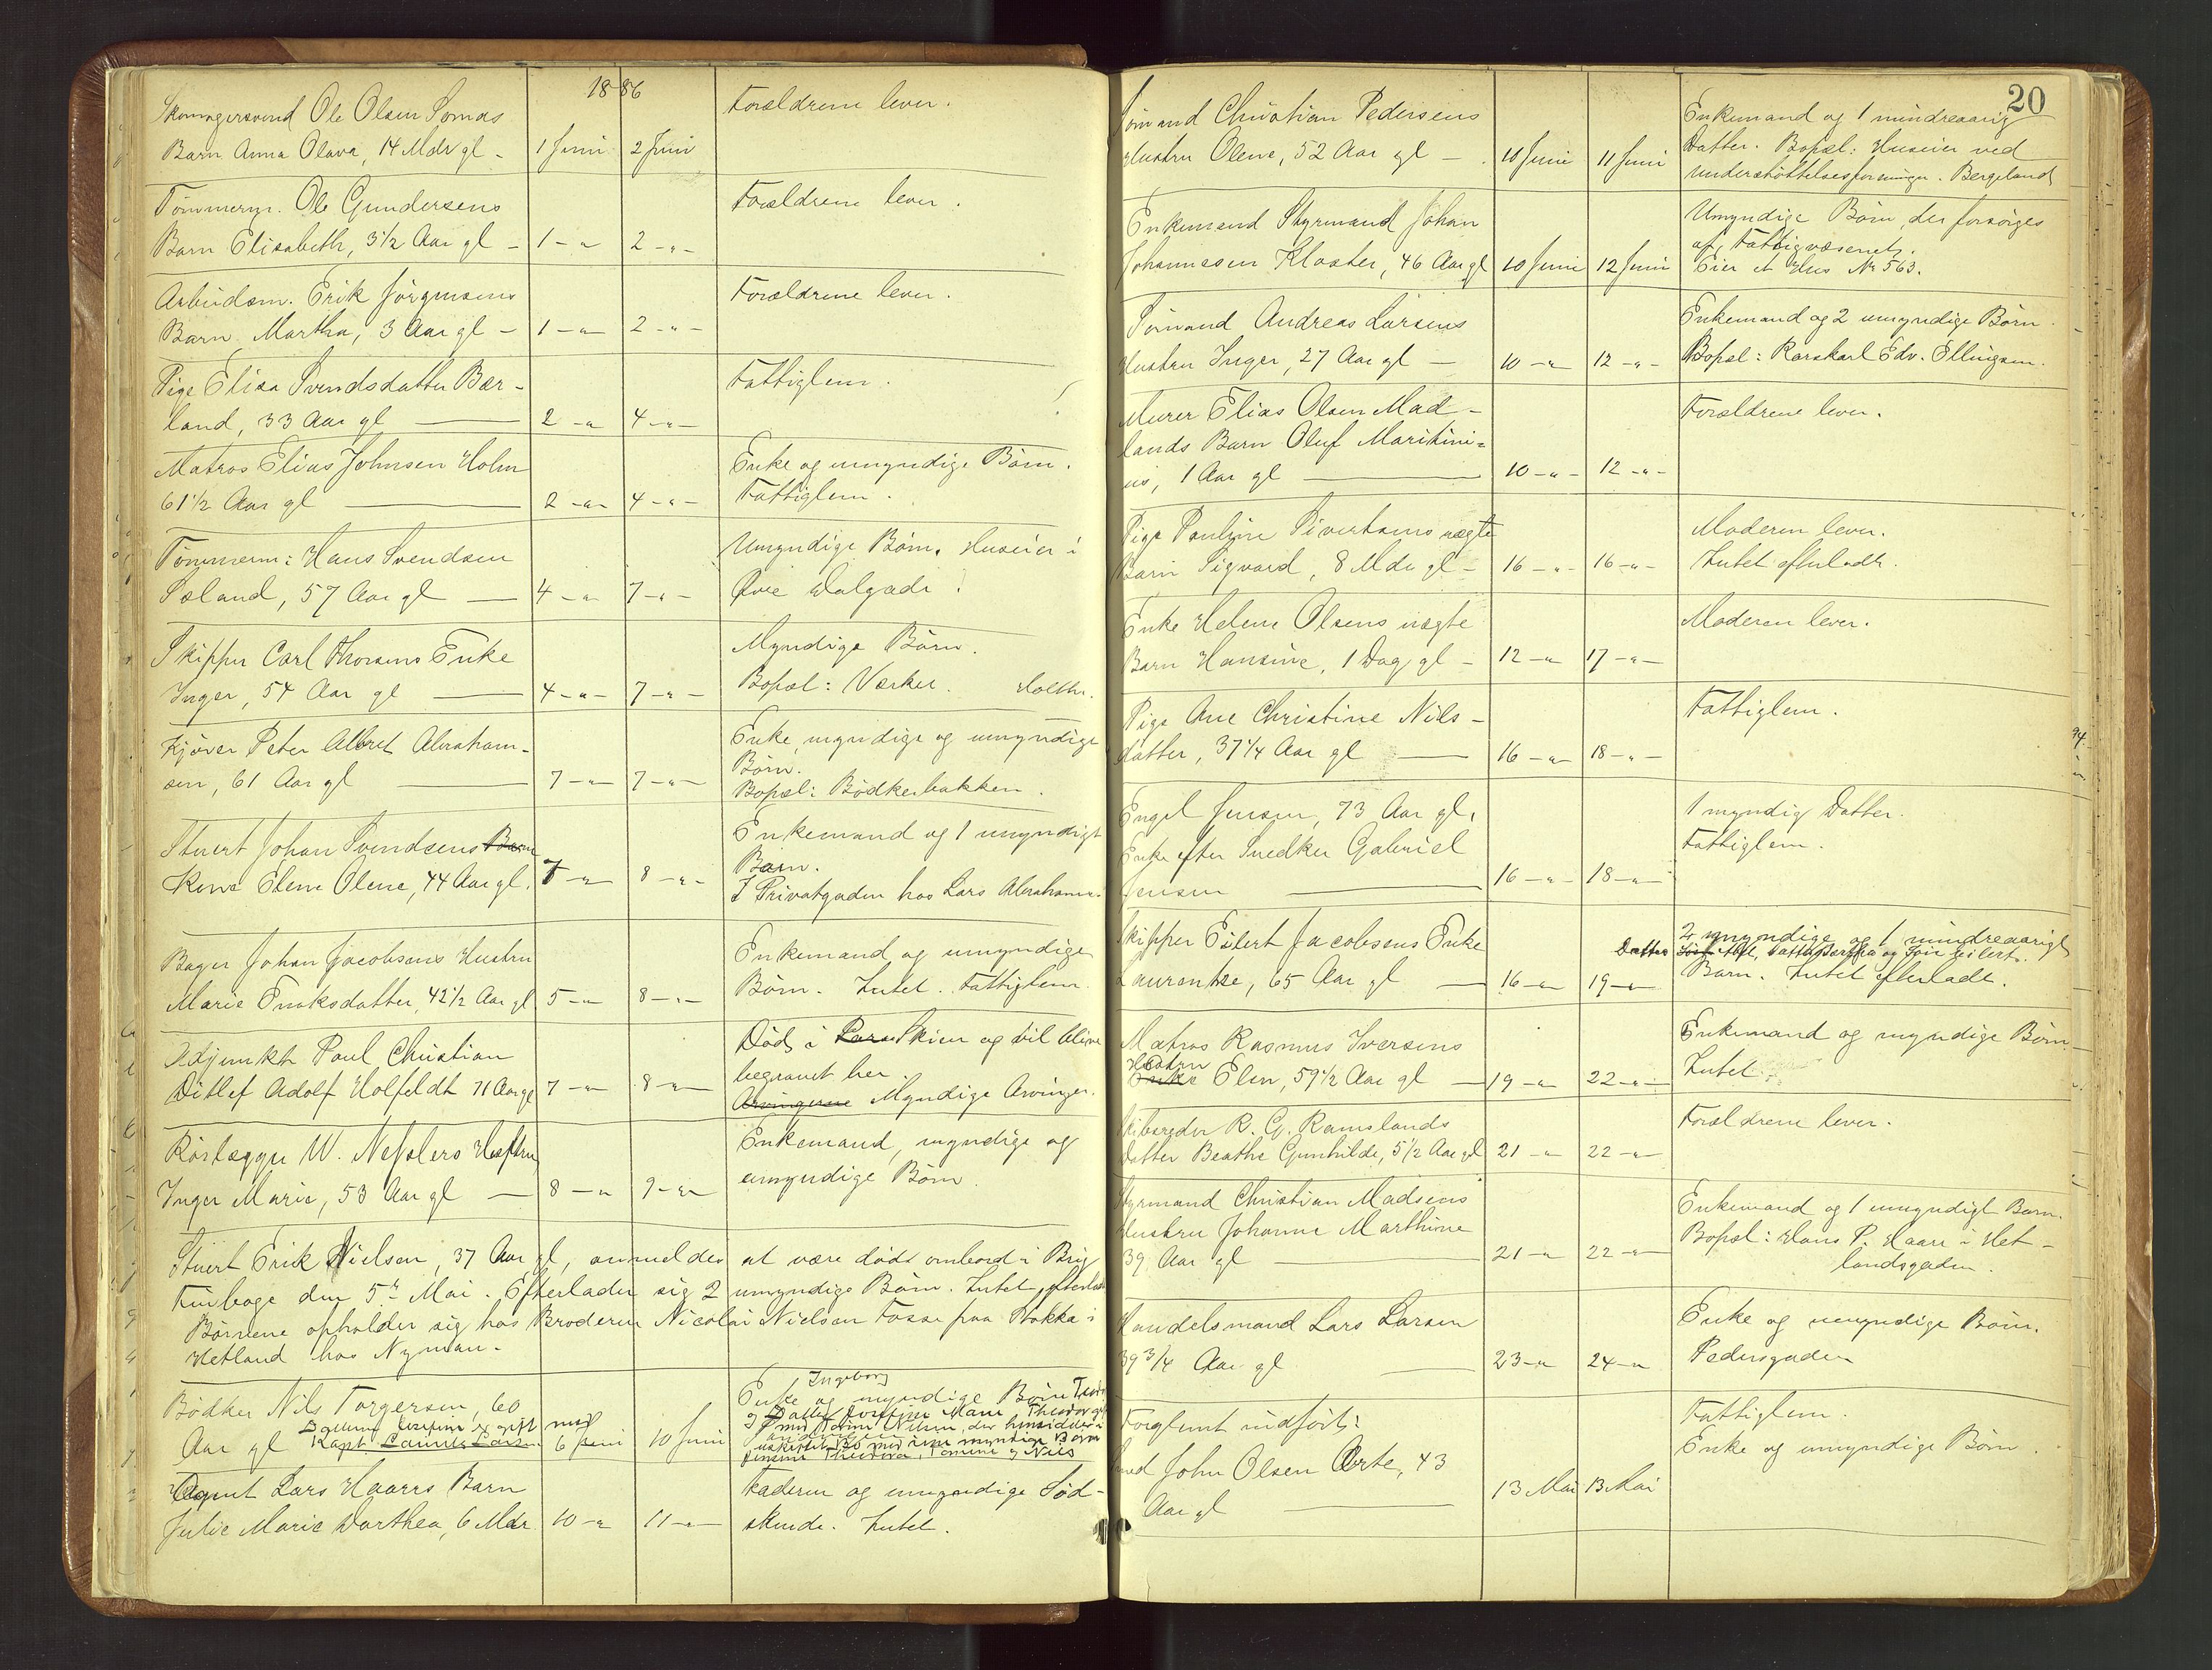 1886
Skomagersvend Ole Olsen Somas
Barn Anna Olava, 14 Mdr gl - 1 Juni 2 Juni
Forældrene lever.
Tømmerm. Ole Gundersens
Barn Elisabeth, 3 1/2 Aar gl - 1 - " 2 - " -
Forældrene lever.
Arbeidsm. Erik Jørgensens
Barn Martha, 3 Aar gl - 1 - " - 2 - " -
Forældrene lever.
Pige Elisa Svendsdatter Bær-
land, 33 Aar gl — 2 - " 4 - " -
Fattiglem.
Matros Elias Johnsen Holm
61 1/2 Aar gl — 2 - " - 4 - " -
Enke og umyndige Børn.
Fattiglem.
Tømmerm: Hans Svendsen
Sæland, 57 Aar gl — 4 - " 7 - " -
Umyndige Børn. Huseier i
Øvre Dalgade.
Skipper Carl Thorsens Enke
Inger, 54 Aar gl — 4 - " - 7 - " -
Myndige Børn.
Bopæl: Værket.
Kjøver Peter Albret Abraham-
sen, 61 Aar gl — 7 - " - 7 - " -
Enke, myndige og umyndige
Børn.
Bopæl: Bødkerbakken.
Stuert Johan Svendsens Barn
Kone Elene Olene, 44 Aar gl. 7 - " 8 - " -
Enkemand og 1 umyndigt
Barn.
I Privatgaden hos Lars Abrahams.
Bager Johan Jacobsens Hustru
Marie Enoksdatter, 42 1/2 Aar gl 5 - " 8 - " -
Enkemand og umyndige
Børn. Intet. Fattiglem.
Adjunkt Poul Christian
Ditlef Adolf Holfeldt 71 Aar gl 7 - " 8 - " -
Død i Skien og vil blive
begravet her.
Arvingerne Myndige Arvinger.
Rørlægger W. Nesslers Hustru
Inger Marie, 53 Aar gl — 8 - " 9 - " -
Enkemand, myndige og
umyndige Børn.
Stuert Erik Nielsen, 37 Aar gl, anmeldes at være død ombord i Brig
den 5te Mai. Efterlader sig 2 umyndige Børn. Intet efterladt
Børnene opholder sig hos Broderen Nicolai Nielsen Fosse paa Stokka i
Hetland hos Nyman.
Bødker Nils Torgersen, 60
Aar gl 6 Juni 10 Juni
Ingeborg
Enke og myndige Børn
Agent Lars Haarrs Barn
Julie Marie Dorthea, 6 Mdr. 10 - " 11 - " -
Faderen og umyndige Sød-
skende. Intet.
20
Sømand Christian Pedersens
Hustru Olene, 52 Aar gl — 10 Juni 11 Juni
Enkemand og 1 mindreaarig
Datter. Bopæl: Huseier ved
Understøttelsesforeningen. Bergeland
Enkemand Styrmand Johan
Johannesen Kloster, 46 Aar gl 10 Juni 12 Juni
Umyndige Børn, der forsørges
af Fattigvæsenet.
Eier et Hus No 563.
Sømand Andreas Larsens
Hustru Inger, 27 Aar gl — 10 - " 12 - " -
Enkemand og 2 umyndige Børn.
Bopæl: Karskarl Edv. Ellingsen.
Murer Elias Olsen Mad-
lands Barn Oluf Maritini-
us, 1 Aar gl — 10 - " - 12 - " -
Forældrene lever.
Pige Pauline Sivertsens uægte
Barn Sigvard, 8 Mdr gl - 16 - " - 16 - " -
Moderen lever.
Intet efterladt.
Enke Helene Olsens uægte
Barn Hansine, 1 Dag gl - 12 - " 17 - " -
Moderen lever.
Pige Ane Christine Nils-
datter, 37 1/4 Aar gl — 16 - " 18 - " -
Fattiglem.
Engel Jensen, 73 Aar gl.
Enke efter Snedker Gabriel
Jensen — 16 - " - 18 - "
1 myndig Datter.
Fattiglem.
Skipper Eilert Jacobsens Enke
Laurentze, 65 Aar gl — 16 - " 19 - "
2 myndige og 1 mindreaarigt
Barn. Intet efterladt.
Matros Rasmus Iversens
Hustru
Enke Elen, 59 1/2 Aar gl — 19 - " 22 - " -
Enkemand og myndige Børn.
Intet
Skibsreder R. G. Ramslands
Datter Beathe Gunhilde, 5 1/2 Aar gl 21 - " 22 - " -
Forældrene lever.
Styrmand Christian Madsens
Hustru Johanne Marthine
39 Aar gl — 21 - " 22 - "
Enkemand og 1 umyndigt Barn.
Bopæl: Hans P. Haarr i Het-
landsgaden.
Handelsmand Lars Larsen
39 3/4 Aar gl — 23 - " 24 - "
Enke og umyndige Børn.
Pedersgaden
Forglemt indført:
Smed John Olsen Orte, 43
Aar gl — 13 Mai 13 Mai
Fattiglem.
Enke og umyndige Børn.